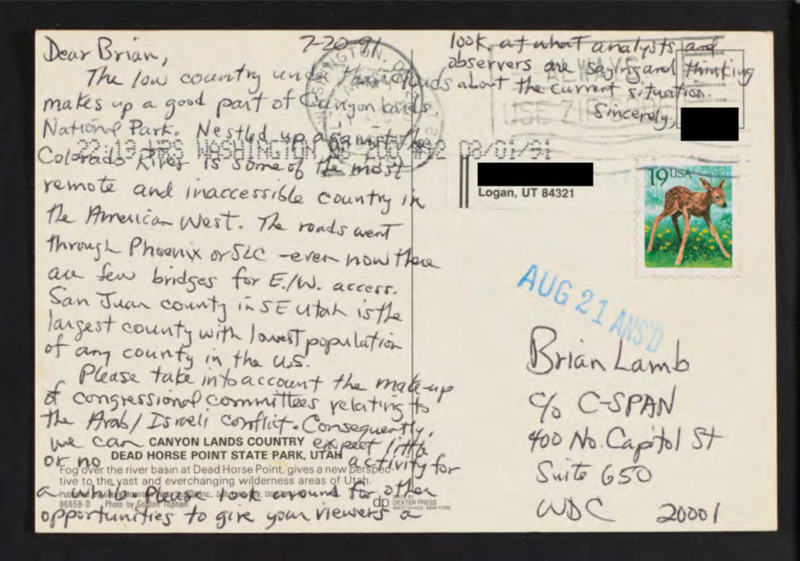 Dear Brian, 7-20-91
The low country under these clouds
makes up a good part of Canyon Lands
National Park. Nestled up against the
Colorado River is some of the most
remote and inaccessible country in
the American West. The roads went
through Phoenix or SLC - even now there
are few bridges for E./W. access.
San Juan county in SE Utah is the
largest county with lowest population
of any county in the U.S.
Please take into account the make-up
of congressional committees relating to
the Arab/Israeli conflict. Consequently,
we can expect little
or no activity for
a while. Please look around for other
opportunities to give your viewers a
look at what analysts and
observers are saying and thinking
about the current situation.
Sincerely,
22:19 HRS WASHINGTON DC 200 #92 08/01/91
WASHINGTON, D
ALWAYS
USE ZIP
Logan, UT 84321
19 USA
AUG 21 ANS'D
Brian Lamb
c/o C-SPAN
400 No. Capitol St
Suite 650
WDC 20001
CANYON LANDS COUNTRY
DEAD HORSE POINT STATE PARK, UTAH
Fog over the river basin at Dead Horse Point, gives a new perspec-
tive to the vast and everchanging wilderness areas of Utah.
86658-D Photo by Gordon Topham
dp DEXTER PRESS
WEST NYACK, NEW YORK